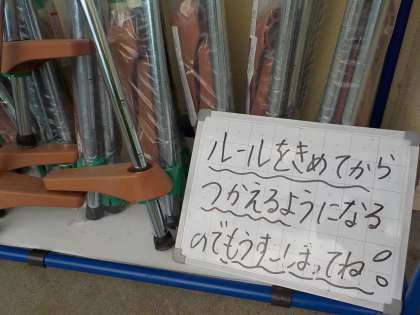 ルールをきめてから
つかえるようになる
のでもうすこしまってね。